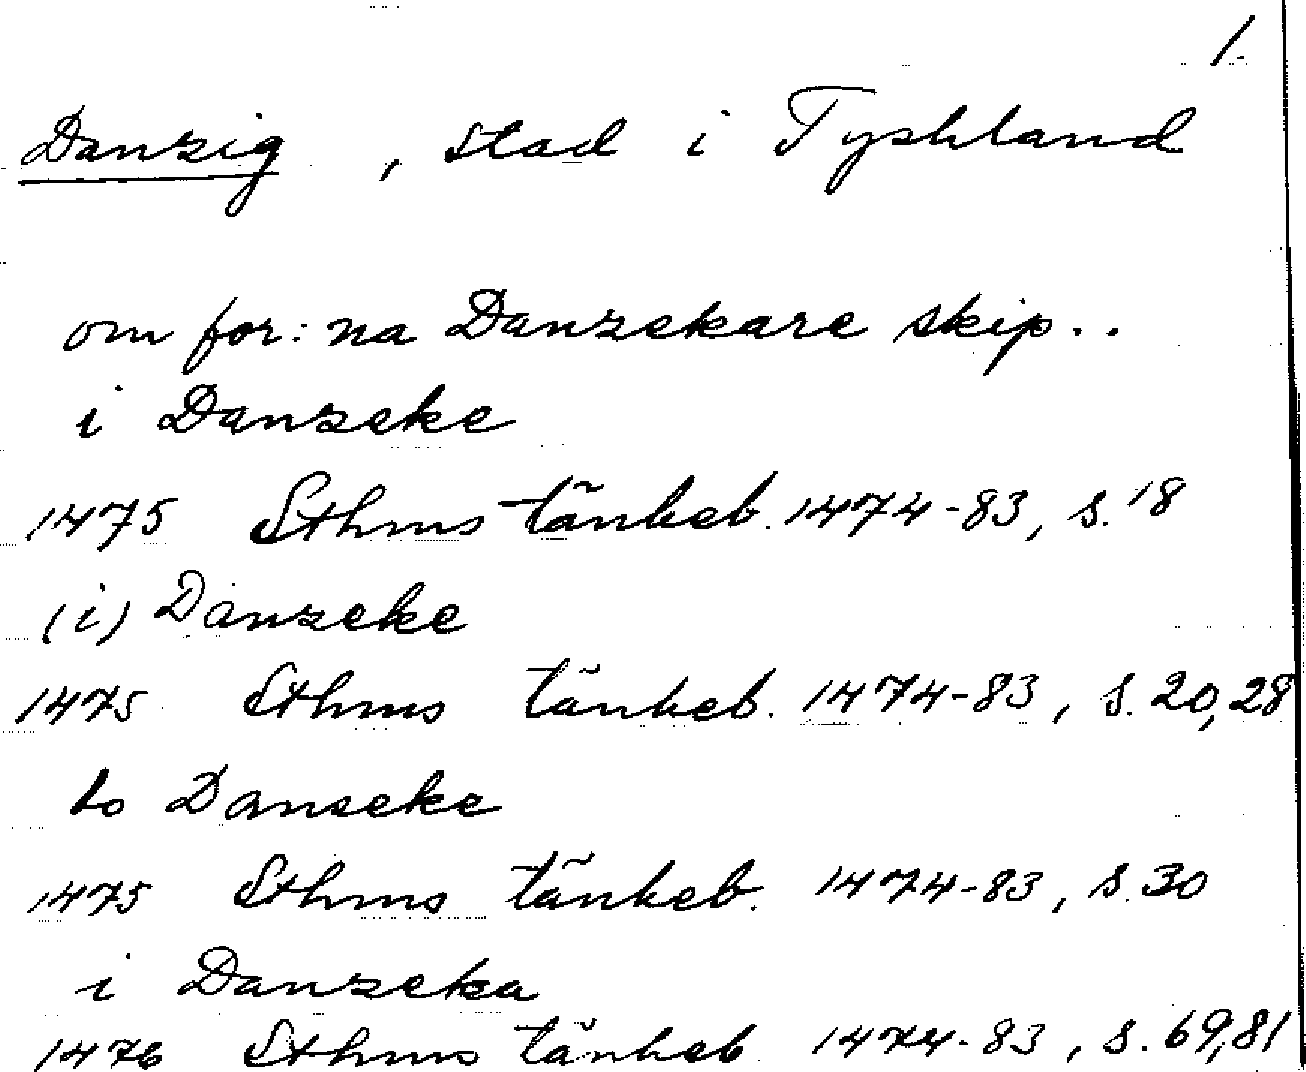 1.
Danzig, stad i Tyskland
om for:na Danzekare skip..
i Danzeke
1475 Sthms tänkeb. 1474-83, s. 18
(i) Danzeke
1475 Sthms tänkeb. 1474-83, s. 20, 28
to Danseke
1475 Sthms tänkeb. 1474-83, s. 30
i Danzeka
1476 Sthms tänkeb 1474-83, s. 69, 81